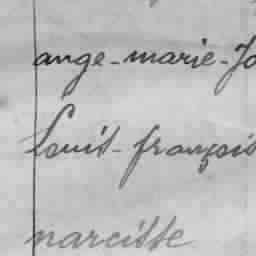 ange-marie-Jo
Louis-françois
narcisse